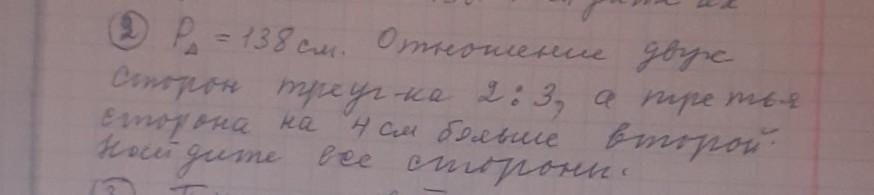 ② P△ = 138 см. Отношение двух
сторон треуг-ка 2 : 3, а третья
сторона на 4 см больше второй.
Найдите все стороны.